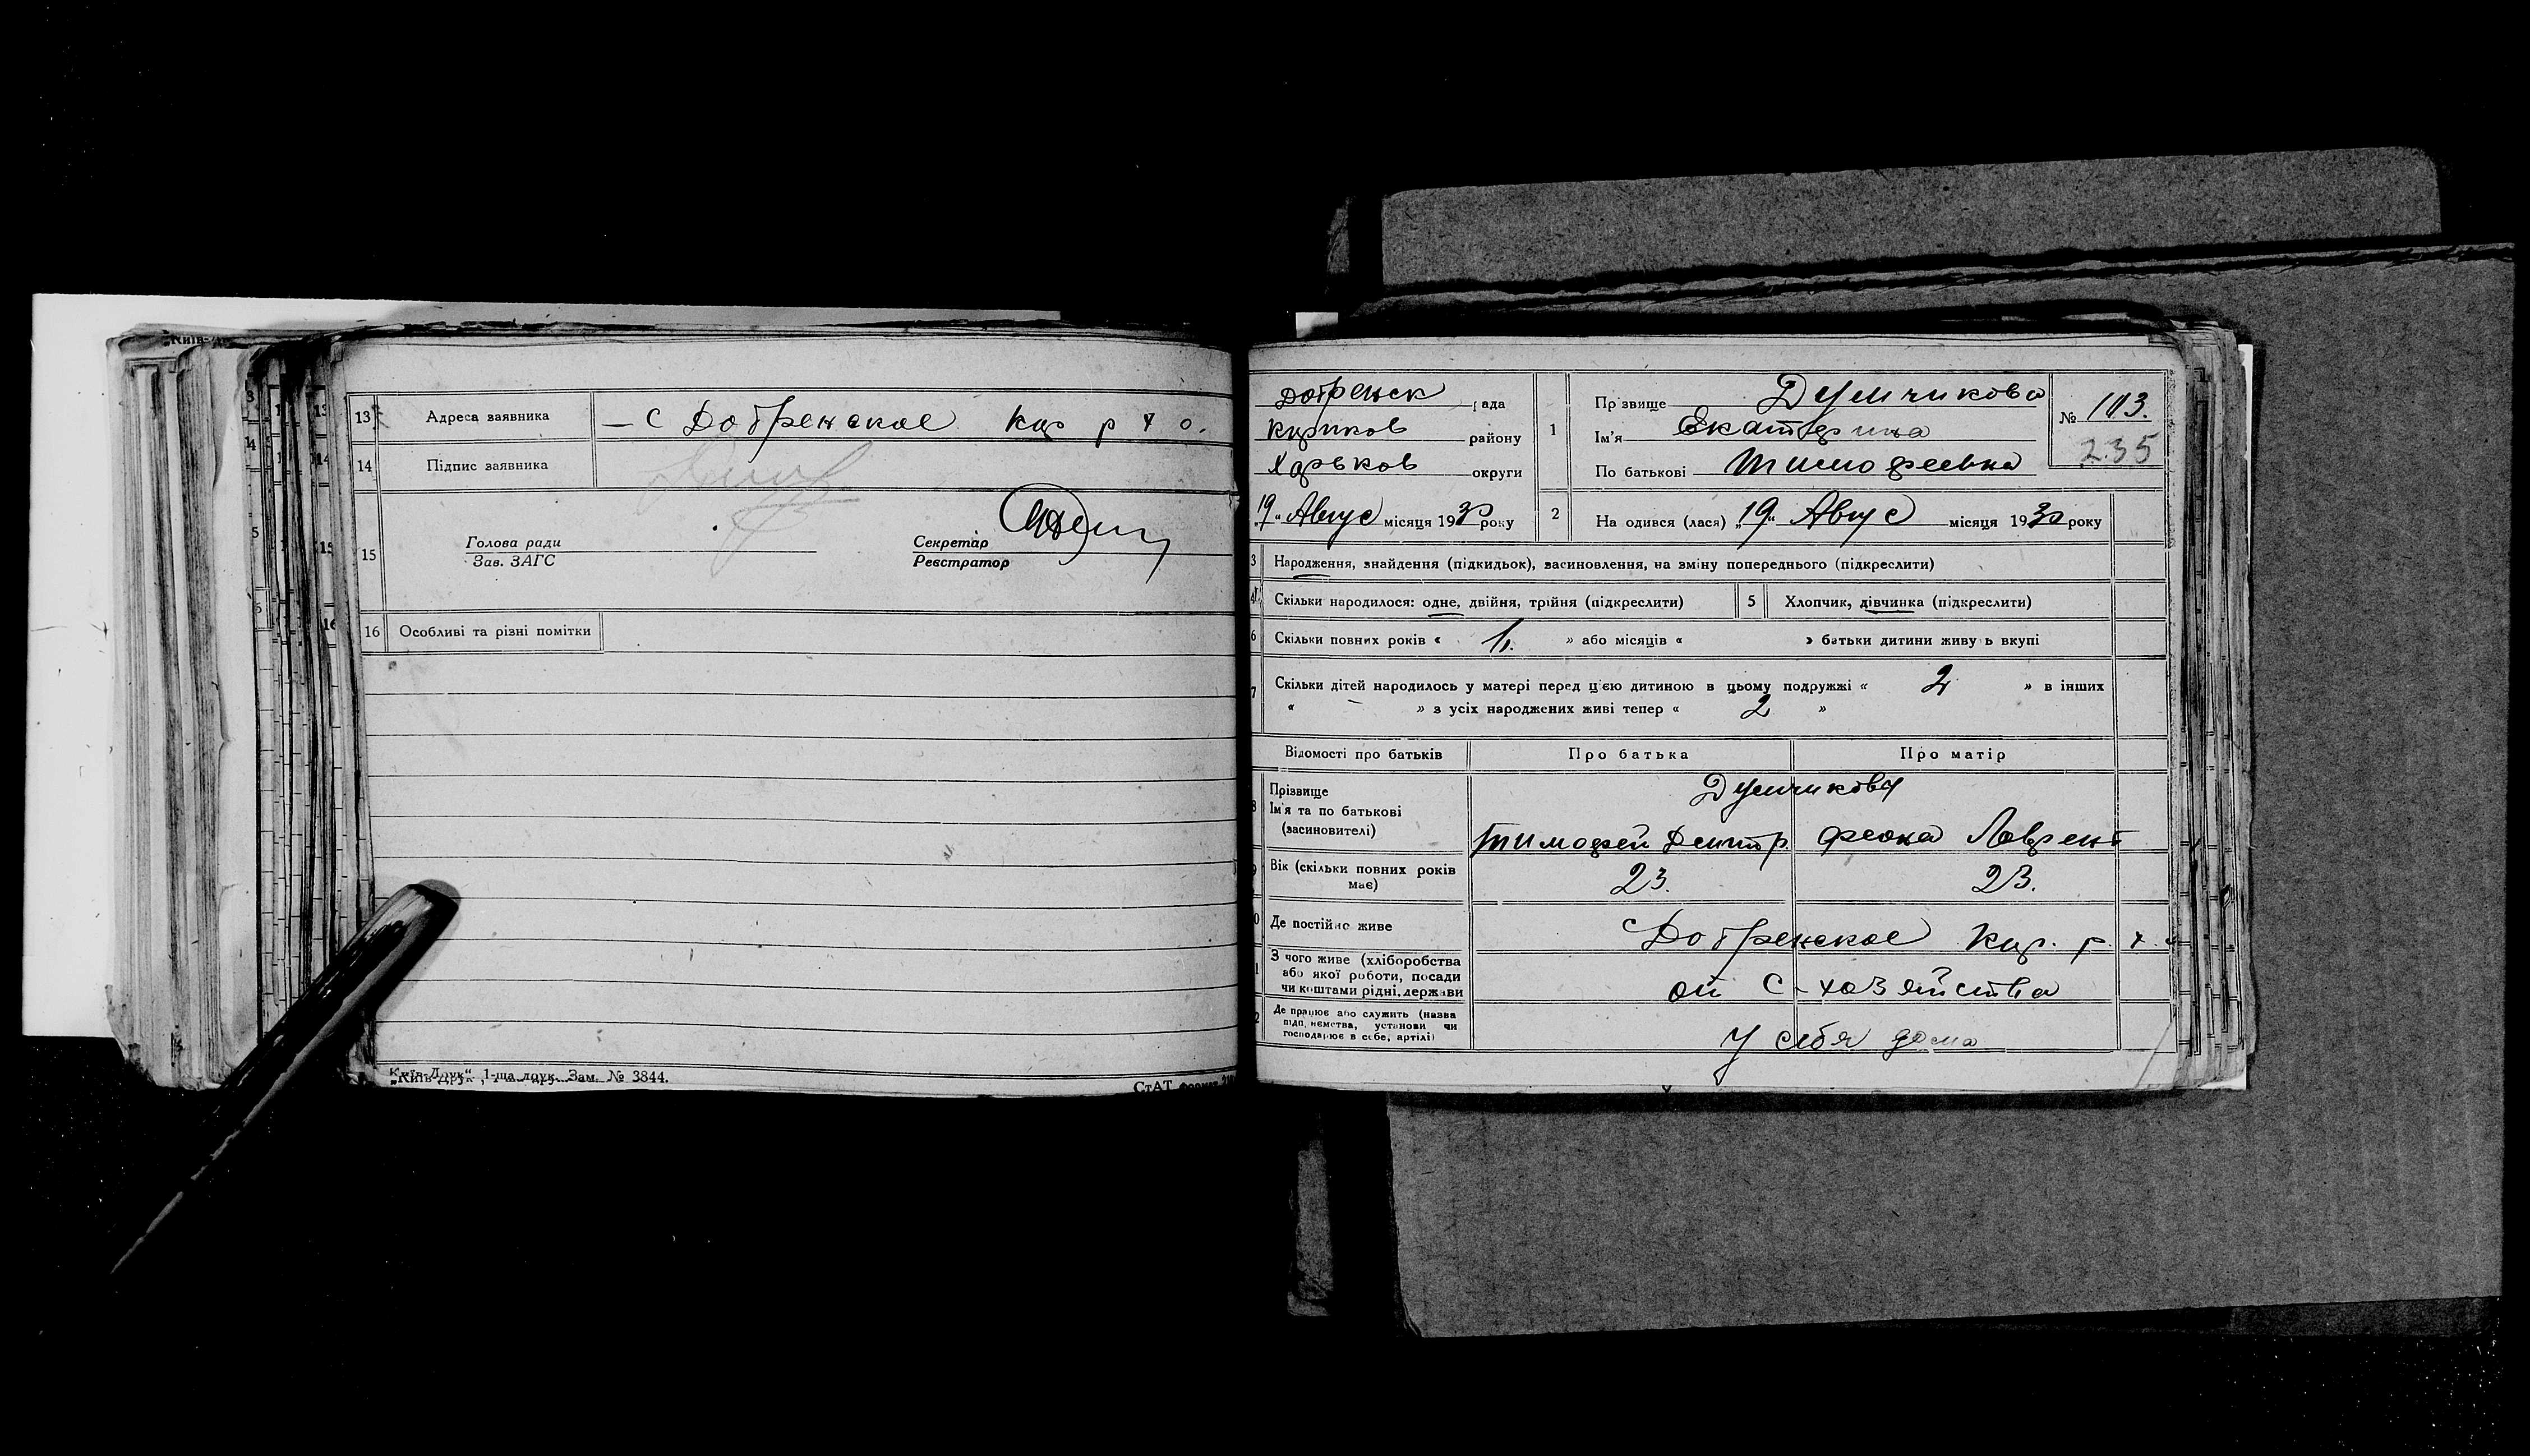 „Київ-
13 Адреса заявника — с Добренское Кир р Х о.
14 Підпис заявника
15 Голова ради
Зав. ЗАГС
Секретар
Реєстратор
16 Особливі та різні помітки
„Київ-Друк“, 1-ша друк. Зам. № 3844.
СтАТ формат
Добренск рада
Кириков району
Харьков округи
„19“ Авгус місяця 1930 року
1 Прізвище Демчикова
Ім'я Екатерина
По батькові Тимофеевна
№ 103.
235
2 На одився (лася) „19“ Авгус місяця 1930 року
3 Народження, знайдення (підкидьок), засиновлення, на зміну попереднього (підкреслити)
4 Скільки народилося: одне, двійня, трійня (підкреслити) 5 Хлопчик, дівчинка (підкреслити)
6 Скільки повних років « » або місяців « » батьки дитини живу ь вкупі
7 Скільки дітей народилось у матері перед ц'єю дитиною в цьому подружжі « 2 » в інших
« – » з усіх народжених живі тепер « 2 »
Відомості про батьків Про батька Про матір
Прізвище
Ім'я та по батькові
(засиновителі)
Демчиковы
Тимофей Дмитр Феона Лаврент
Вік (скільки повних років має) 23. 23.
Де постійно живе с Добренское Кир. р. х.
З чого живе (хліборобства
або якої роботи, посади
чи коштами рідні, держави
от с-хозяйства
Де працює або служить (назва
підп ємства, установи чи
господарює в себе, артілі)
у себя дома